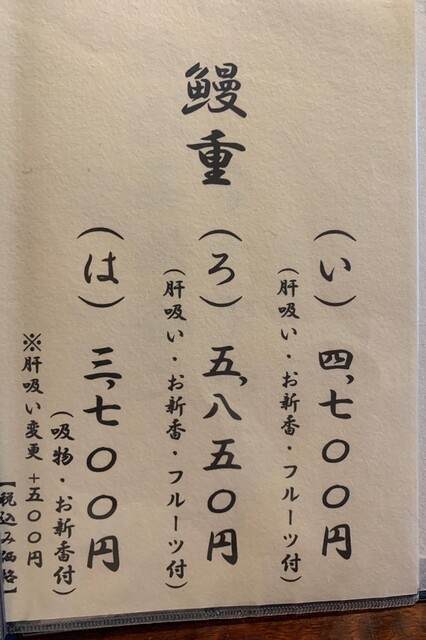 鰻重
（い）四、七〇〇円
（肝吸い・お新香・フルーツ付）
（ろ）五、八五〇円
（肝吸い・お新香・フルーツ付）
（は）三、七〇〇円
（吸物・お新香付）
※肝吸い変更＋五〇〇円
【税込み価格】